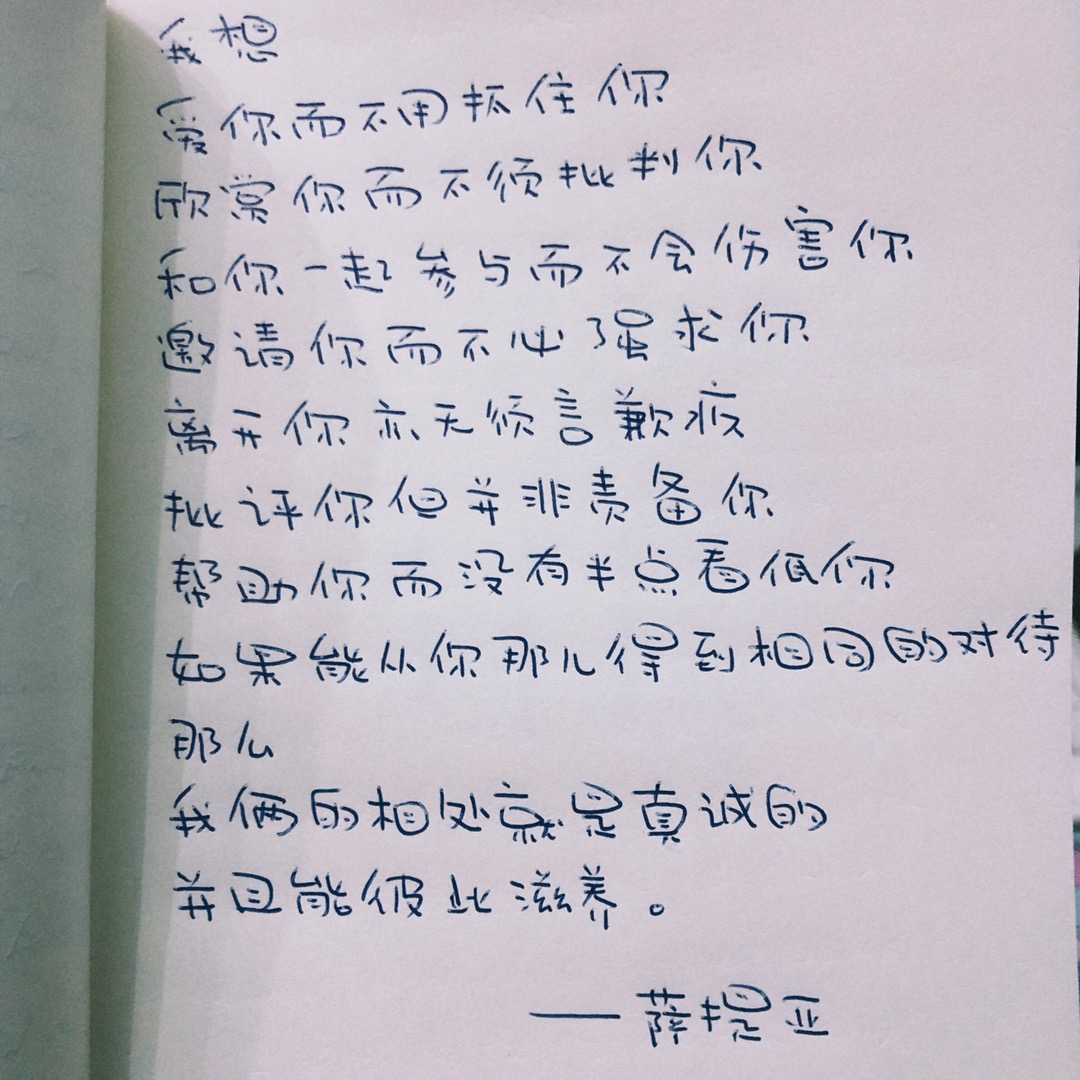 我想
爱你而不用抓住你
欣赏你而不须批判你
和你一起参与而不会伤害你
邀请你而不必强求你
离开你亦无须言歉疚
批评你但并非责备你
帮助你而没有半点看低你
如果能从你那儿得到相同的对待
那么
我俩的相处就是真诚的
并且能彼此滋养。
——薩提亚